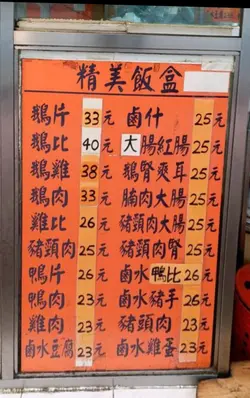 精美飯盒
鵝片 33元
鵝比 40元
鵝雞 38元
鵝肉 33元
雞比 26元
豬頸肉 25元
鴨片 26元
鴨肉 23元
雞肉 23元
鹵水豆腐 23元
鹵什 25元
大腸紅腸 25元
鵝腎爽耳 25元
腩肉大腸 25元
豬頸肉大腸 25元
豬頸肉腎 25元
鹵水鴨比 26元
鹵水豬手 26元
豬頭肉 23元
鹵水雞蛋 23元